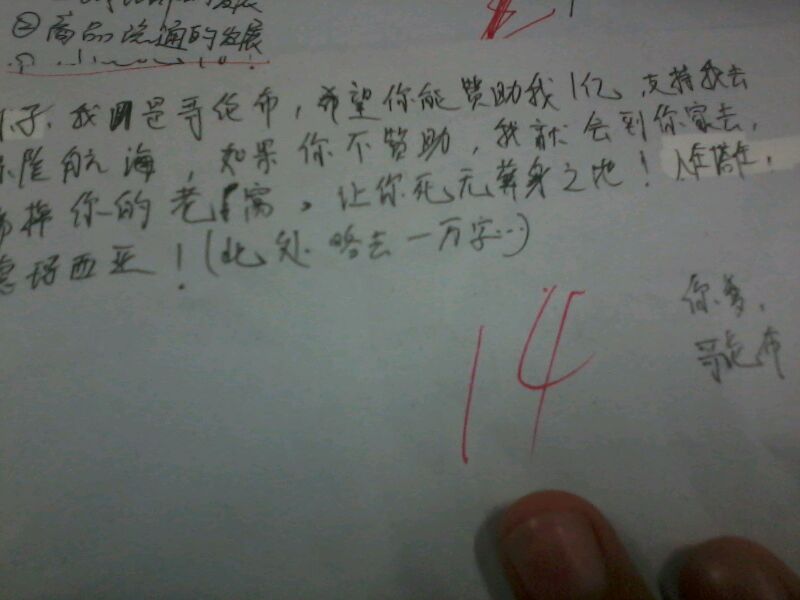 ②商品流通的发展
子,我是哥伦布,希望你能赞助我1亿,支持我去
险航海,如果你不赞助,我就会到你家去,
掉你的老窝,让你死无葬身之地!
西亚!(此处略去一万字…)
14
你爹,
哥伦布